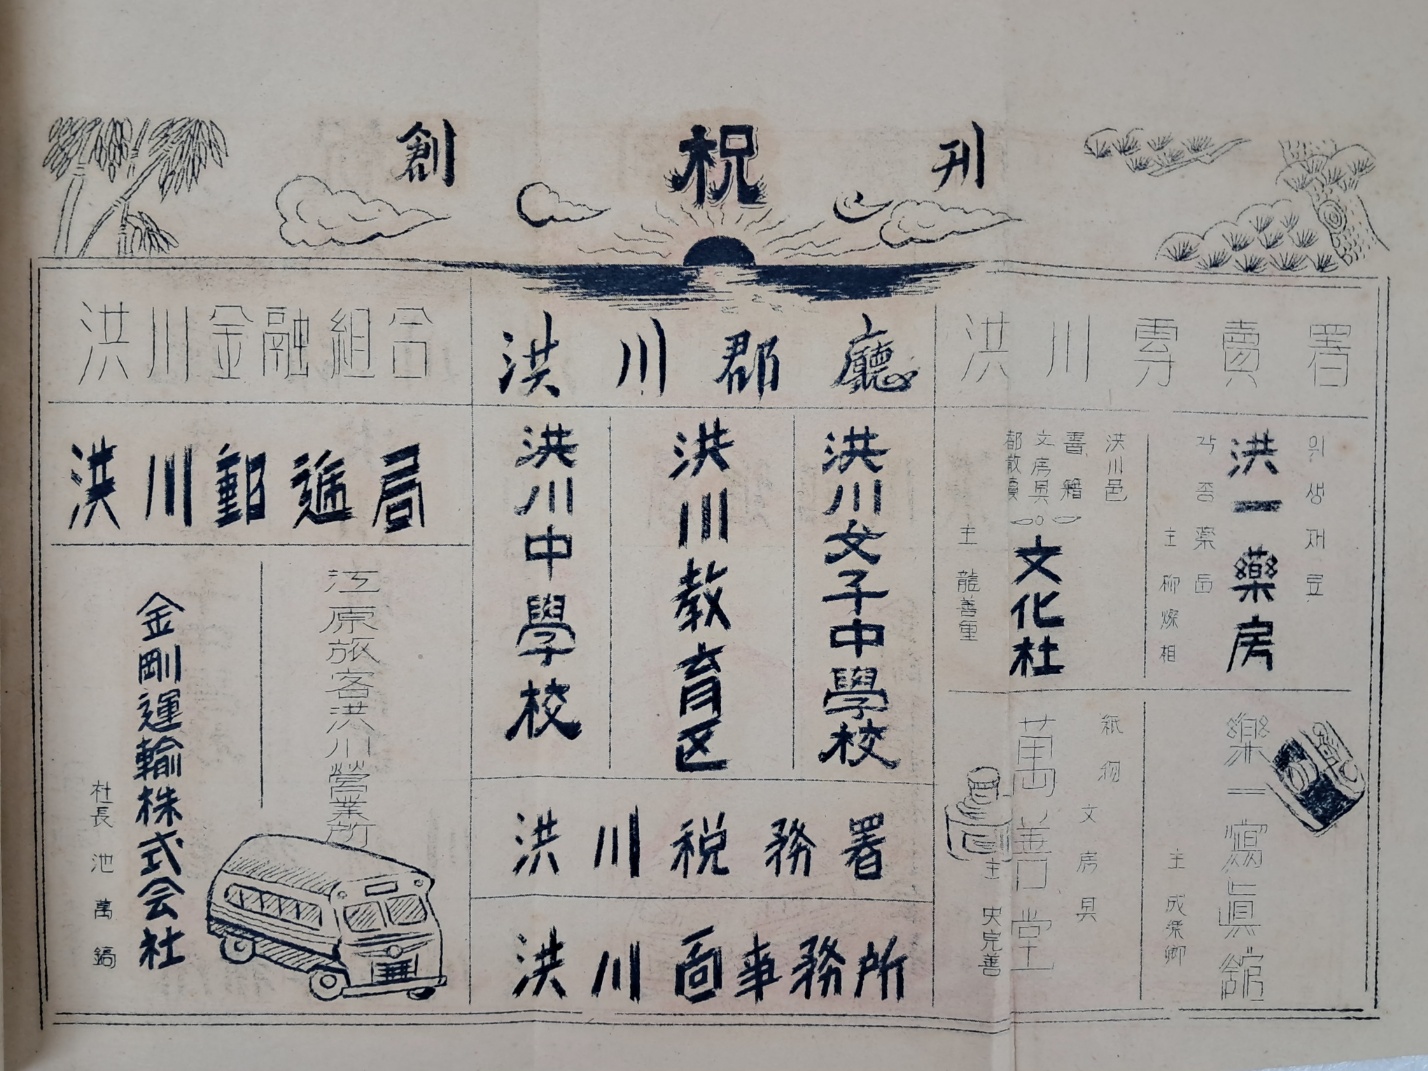 創 祝 刊
洪川金融組合
洪川郡廳
洪川專賣署
洪川郵遞局
洪川中學校
洪川敎育区
洪川女子中學校
洪川邑
書籍
文房具
文化社
主 龍善重
위생재료
洪一藥房
각종藥品
主 柳燦相
江原旅客洪川營業所
金剛運輸株式会社
社長 池萬鎬
洪川税務署
洪川面事務所
紙物 文房具
萬善堂
主 史完善
樂一寫眞館
主 成樂卿